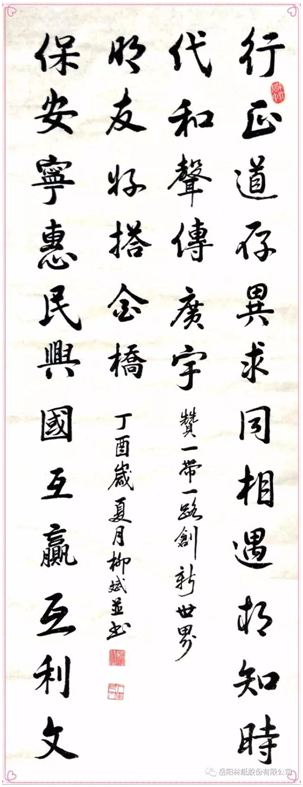 行正道存異求同相遇相知時
代和聲傳廣宇
保安寧惠民興國互贏互利文
明友好搭金橋
贊一帶一路創新世界
丁酉歲夏月柳斌並书
岳阳林纸股份有限公司